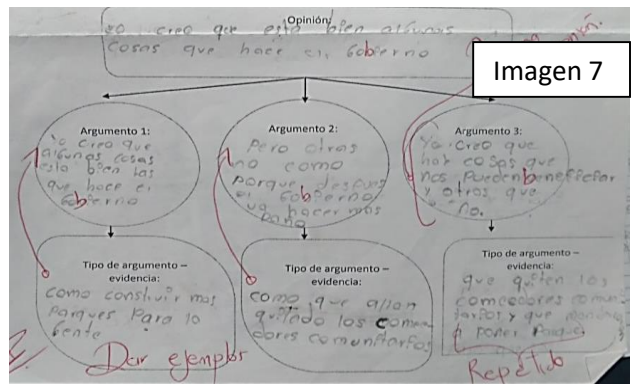 Opinión:
yo creo que está bien algunas
cosas que hace el Gobierno
Imagen 7
Argumento 1:
Yo creo que
algunas cosas
esta bien las
que hace el
Gobierno
Argumento 2:
Pero otras
no como
porque despues
el Gobierno
va hacer mas
Argumento 3:
Yo creo que
hay cosas que
nos pueden beneficiar
y otros que
no.
Tipo de argumento –
evidencia:
como construir mas
parques para la
gente
Tipo de argumento –
evidencia:
como que allan
quitado los comen
dores comunitarios
Tipo de argumento –
evidencia:
que quiten los
comeedores comun
tarios y que
a poner Parque
Dar ejemplos
Repetido